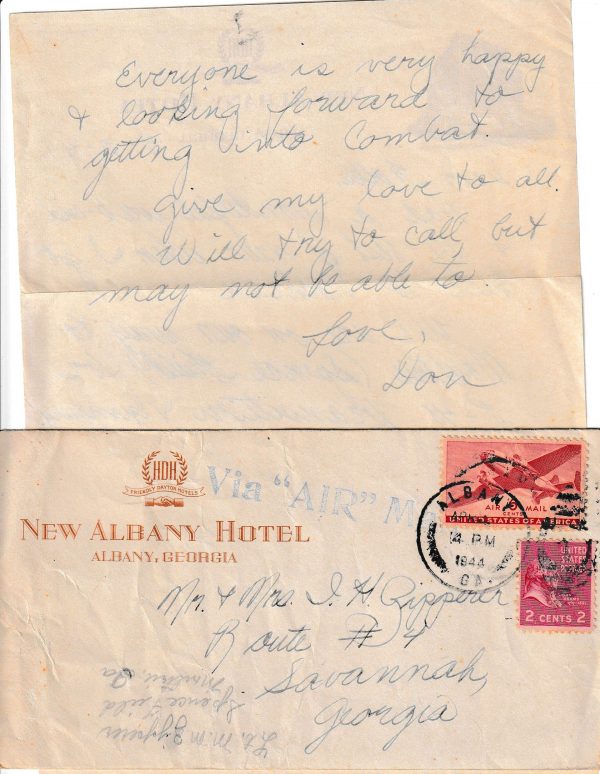 Everyone is very happy
& looking forward to
getting into Combat.
Give my love to all.
Will try to call, but
may not be able to.
Love,
Don
HDH
FRIENDLY DAYTON HOTELS
Via "AIR" M
NEW ALBANY HOTEL
ALBANY, GEORGIA
AIR MAIL
CENTS
UNITED STATES OF AMERICA
ALBANY
4 PM
1944
GA.
UNITED
STATES
2 CENTS 2
Mr. & Mrs. I. H. Zipperer
Route # 4
Savannah,
Georgia
Lt. M. M. Zipperer
Spence Field
Moultrie, Ga